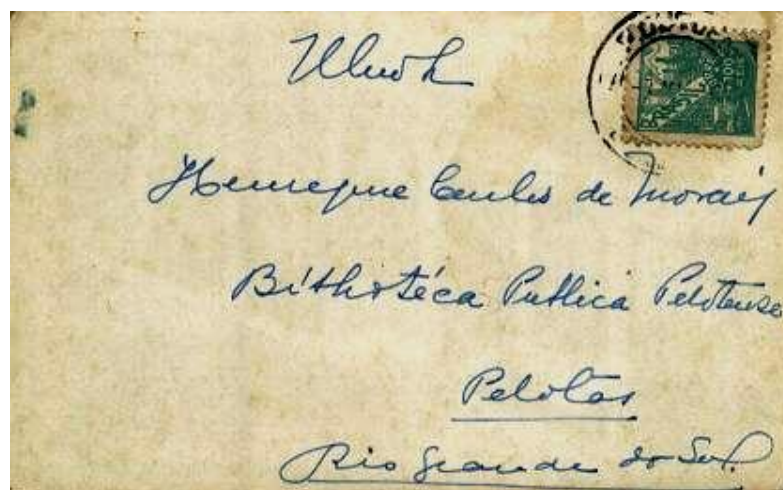 Henrique Carlos de Morais
Bibliotéca Publica Pelotense
Pelotas
Rio Grande do Sul.
BRASIL